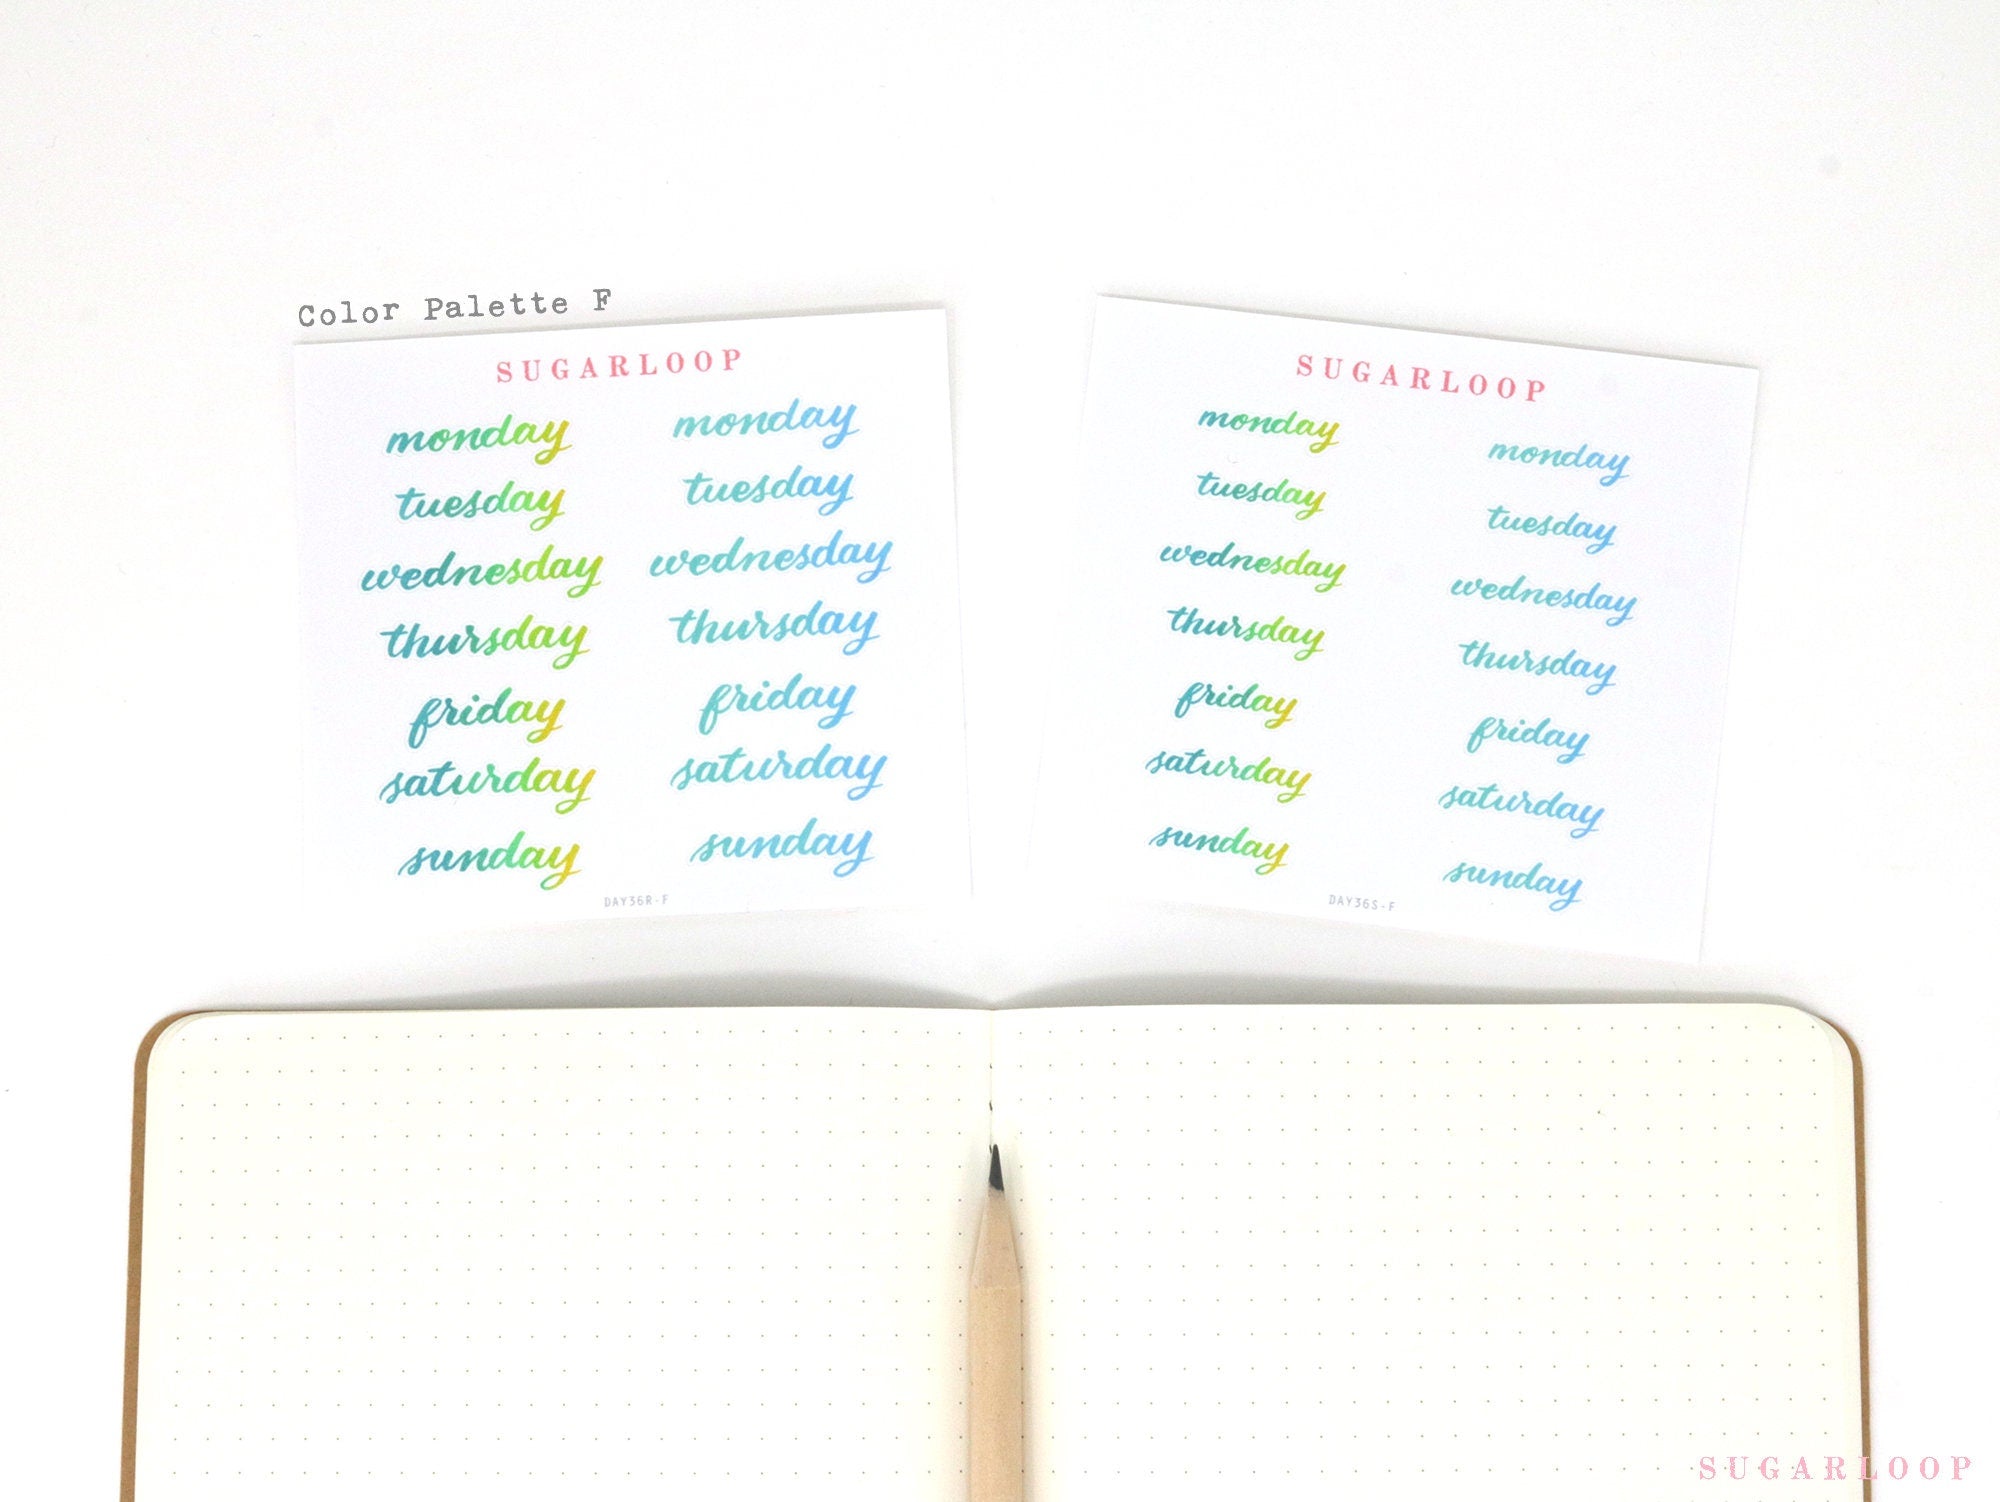 Color Palette F
SUGARLOOP
monday monday
tuesday tuesday
wednesday wednesday
thursday thursday
friday friday
saturday saturday
sunday sunday
DAY36R-F
SUGARLOOP
monday monday
tuesday tuesday
wednesday wednesday
thursday thursday
friday friday
saturday saturday
sunday sunday
DAY36S-F
SUGARLOOP